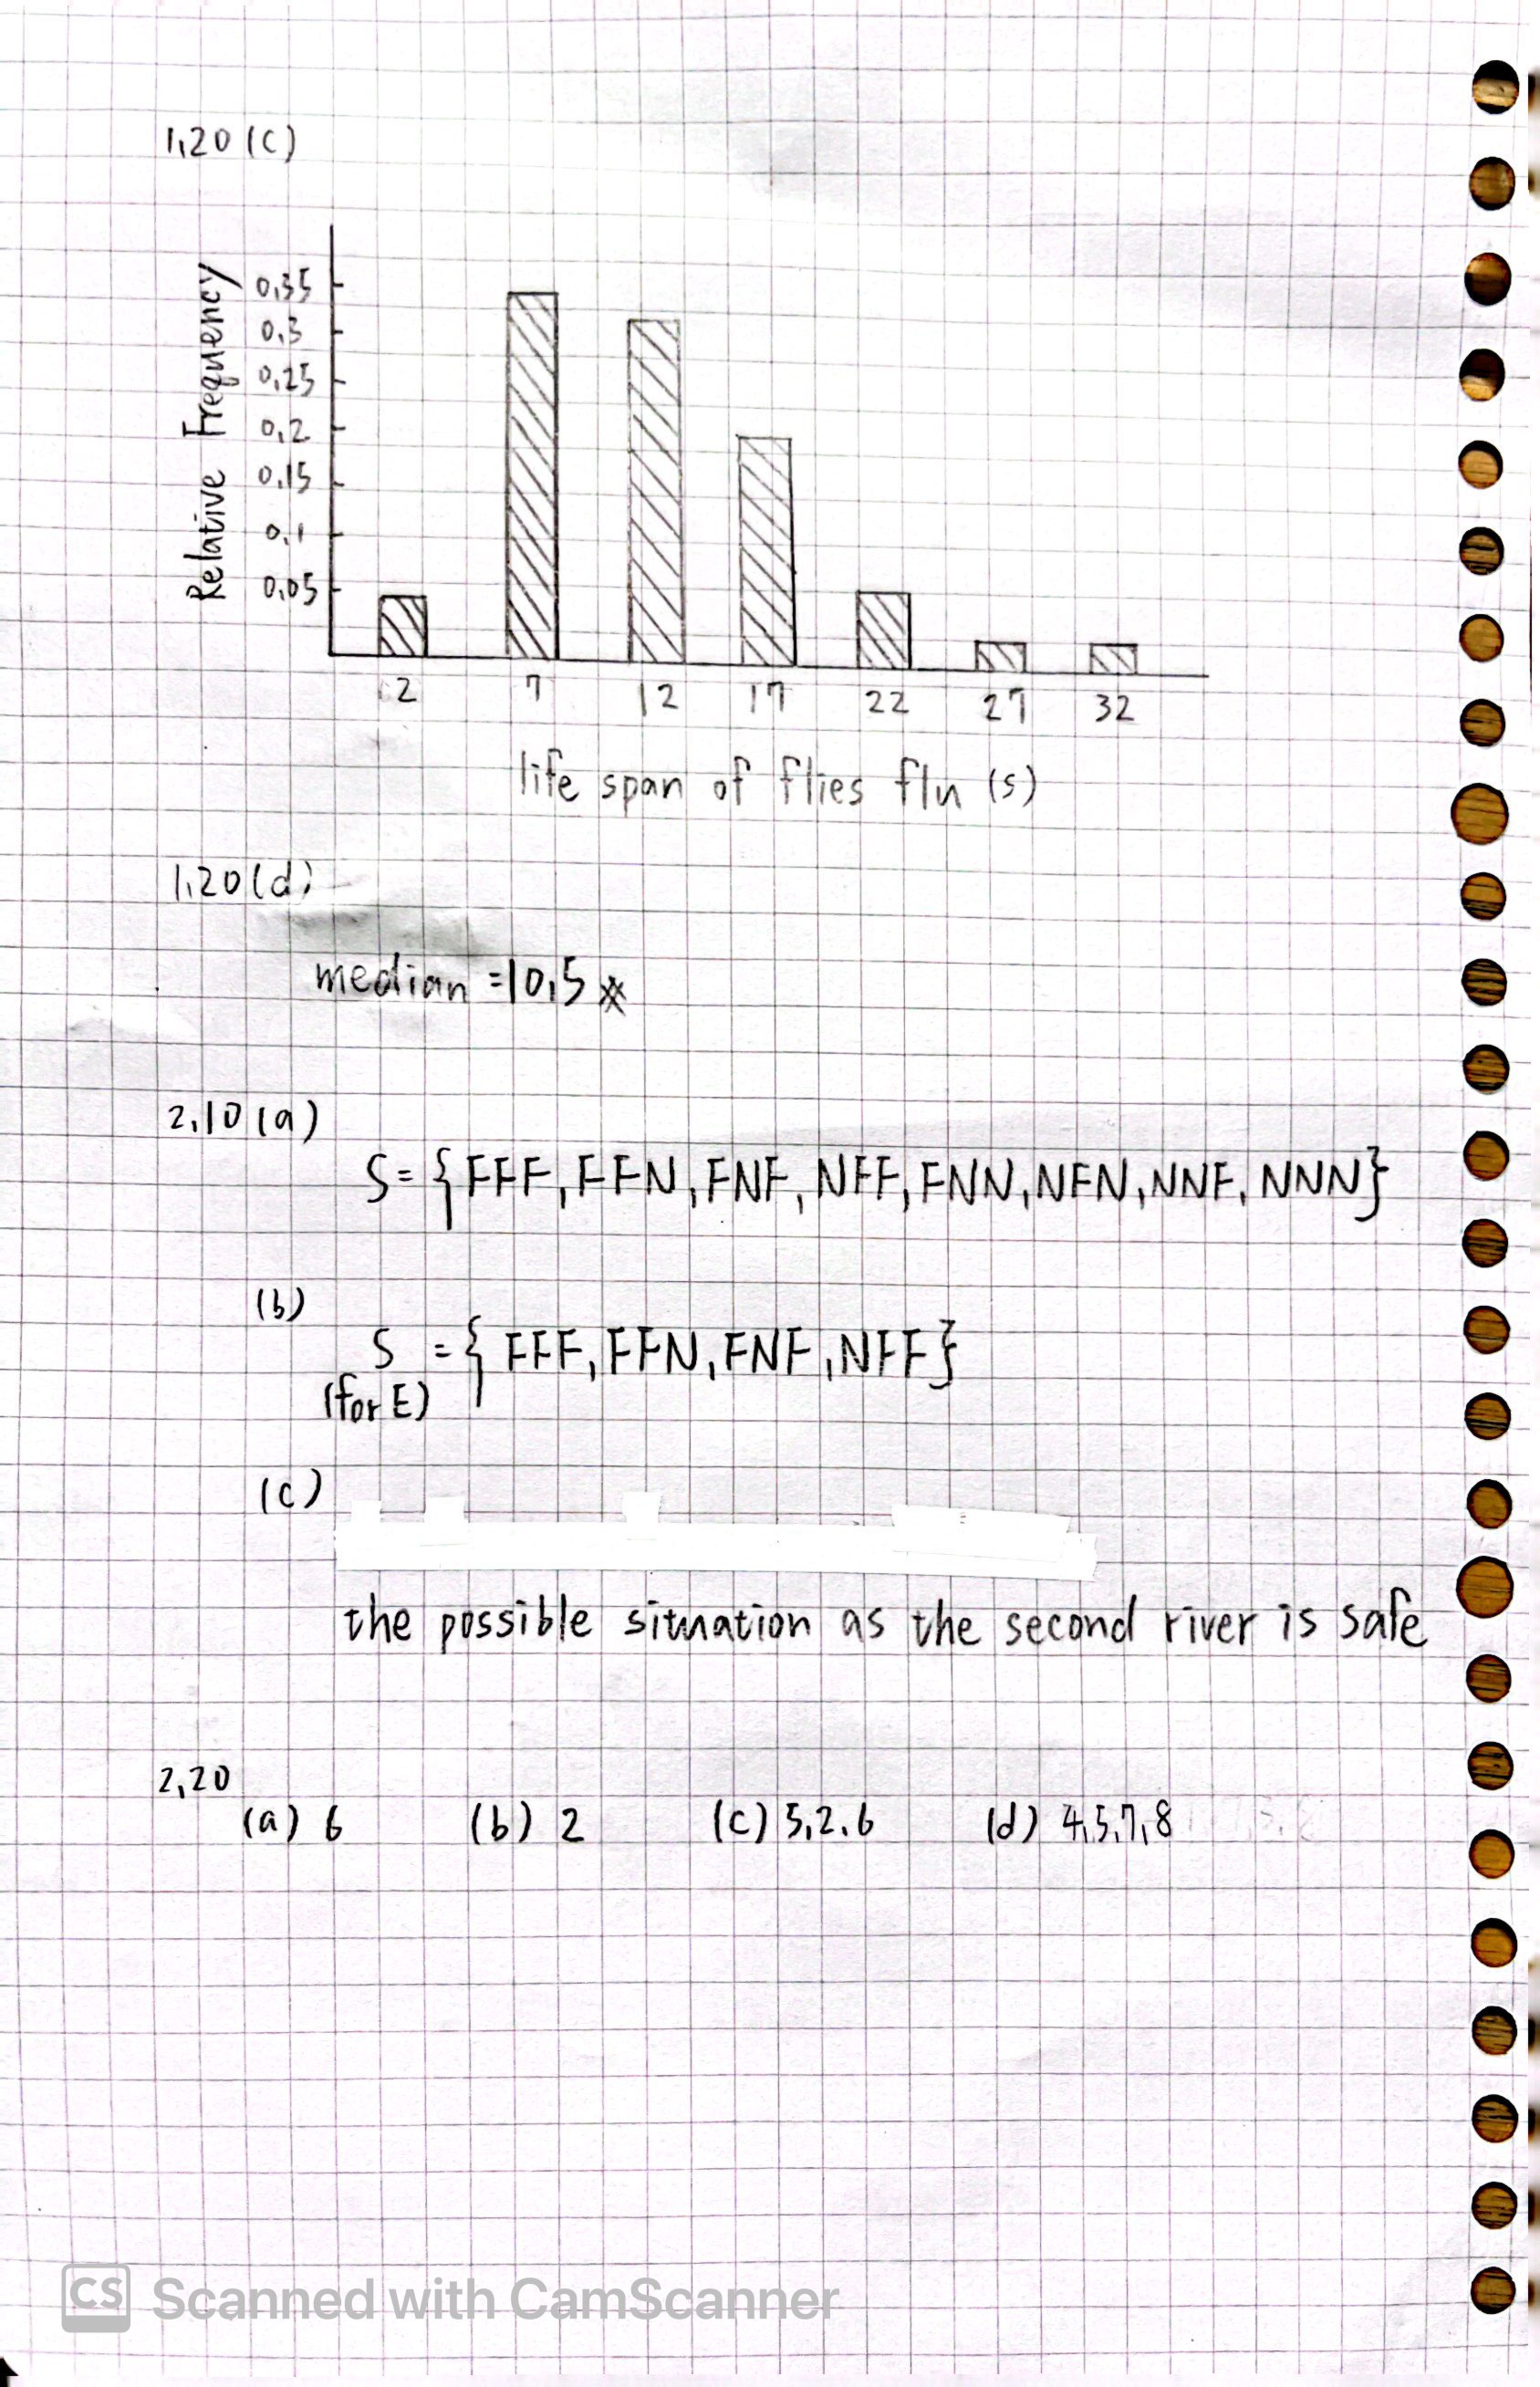 1.20 (c)
Relative Frequency
0.35
0.3
0.25
0.2
0.15
0.1
0.05
2 7 12 17 22 27 32
life span of flies flu (s)
1.20 (d)
median = 10.5 ※
2.10 (a)
S = { FFF, FFN, FNF, NFF, FNN, NFN, NNF, NNN }
(b)
S = { FFF, FFN, FNF, NFF }
(for E)
(c)
the possible situation as the second river is safe
2.20
(a) 6 (b) 2 (c) 5.2.6 (d) 4.5.7.8
CS Scanned with CamScanner